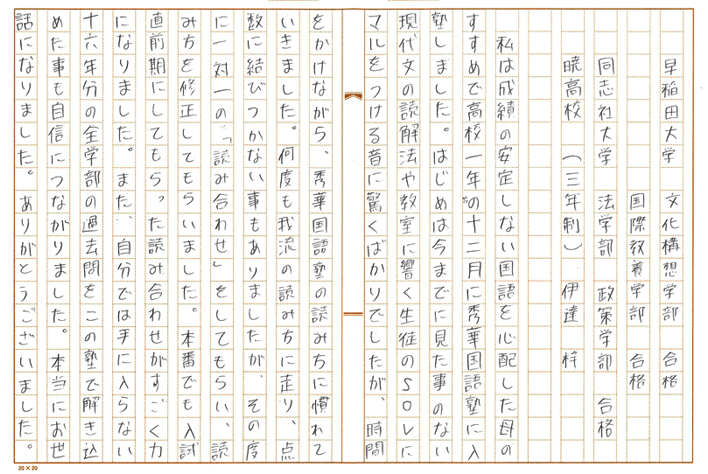 早稲田大学　文化構想学部　合格
国際教養学部　合格
同志社大学　法学部　政策学部　合格
暁高校　（三年制）　伊達　梓
私は成績の安定しない国語を心配した母の
すすめで高校一年の十二月に秀華国語塾に入
塾しました。はじめは今までに見た事のない
現代文の読解法や教室に響く生徒のSOLに
マルをつける音に驚くばかりでしたが、時間
をかけながら、秀華国語塾の読み方に慣れて
いきました。何度も我流の読み方に走り、点
数に結びつかない事もありましたが、その度
に一対一の「読み合わせ」をしてもらい、読
み方を修正してもらいました。本番でも入試
直前期にしてもらった読み合わせがすごく力
になりました。また、自分では手に入らない
十六年分の全学部の過去問をこの塾で解き込
めた事も自信につながりました。本当にお世
話になりました。ありがとうございました。
20×20